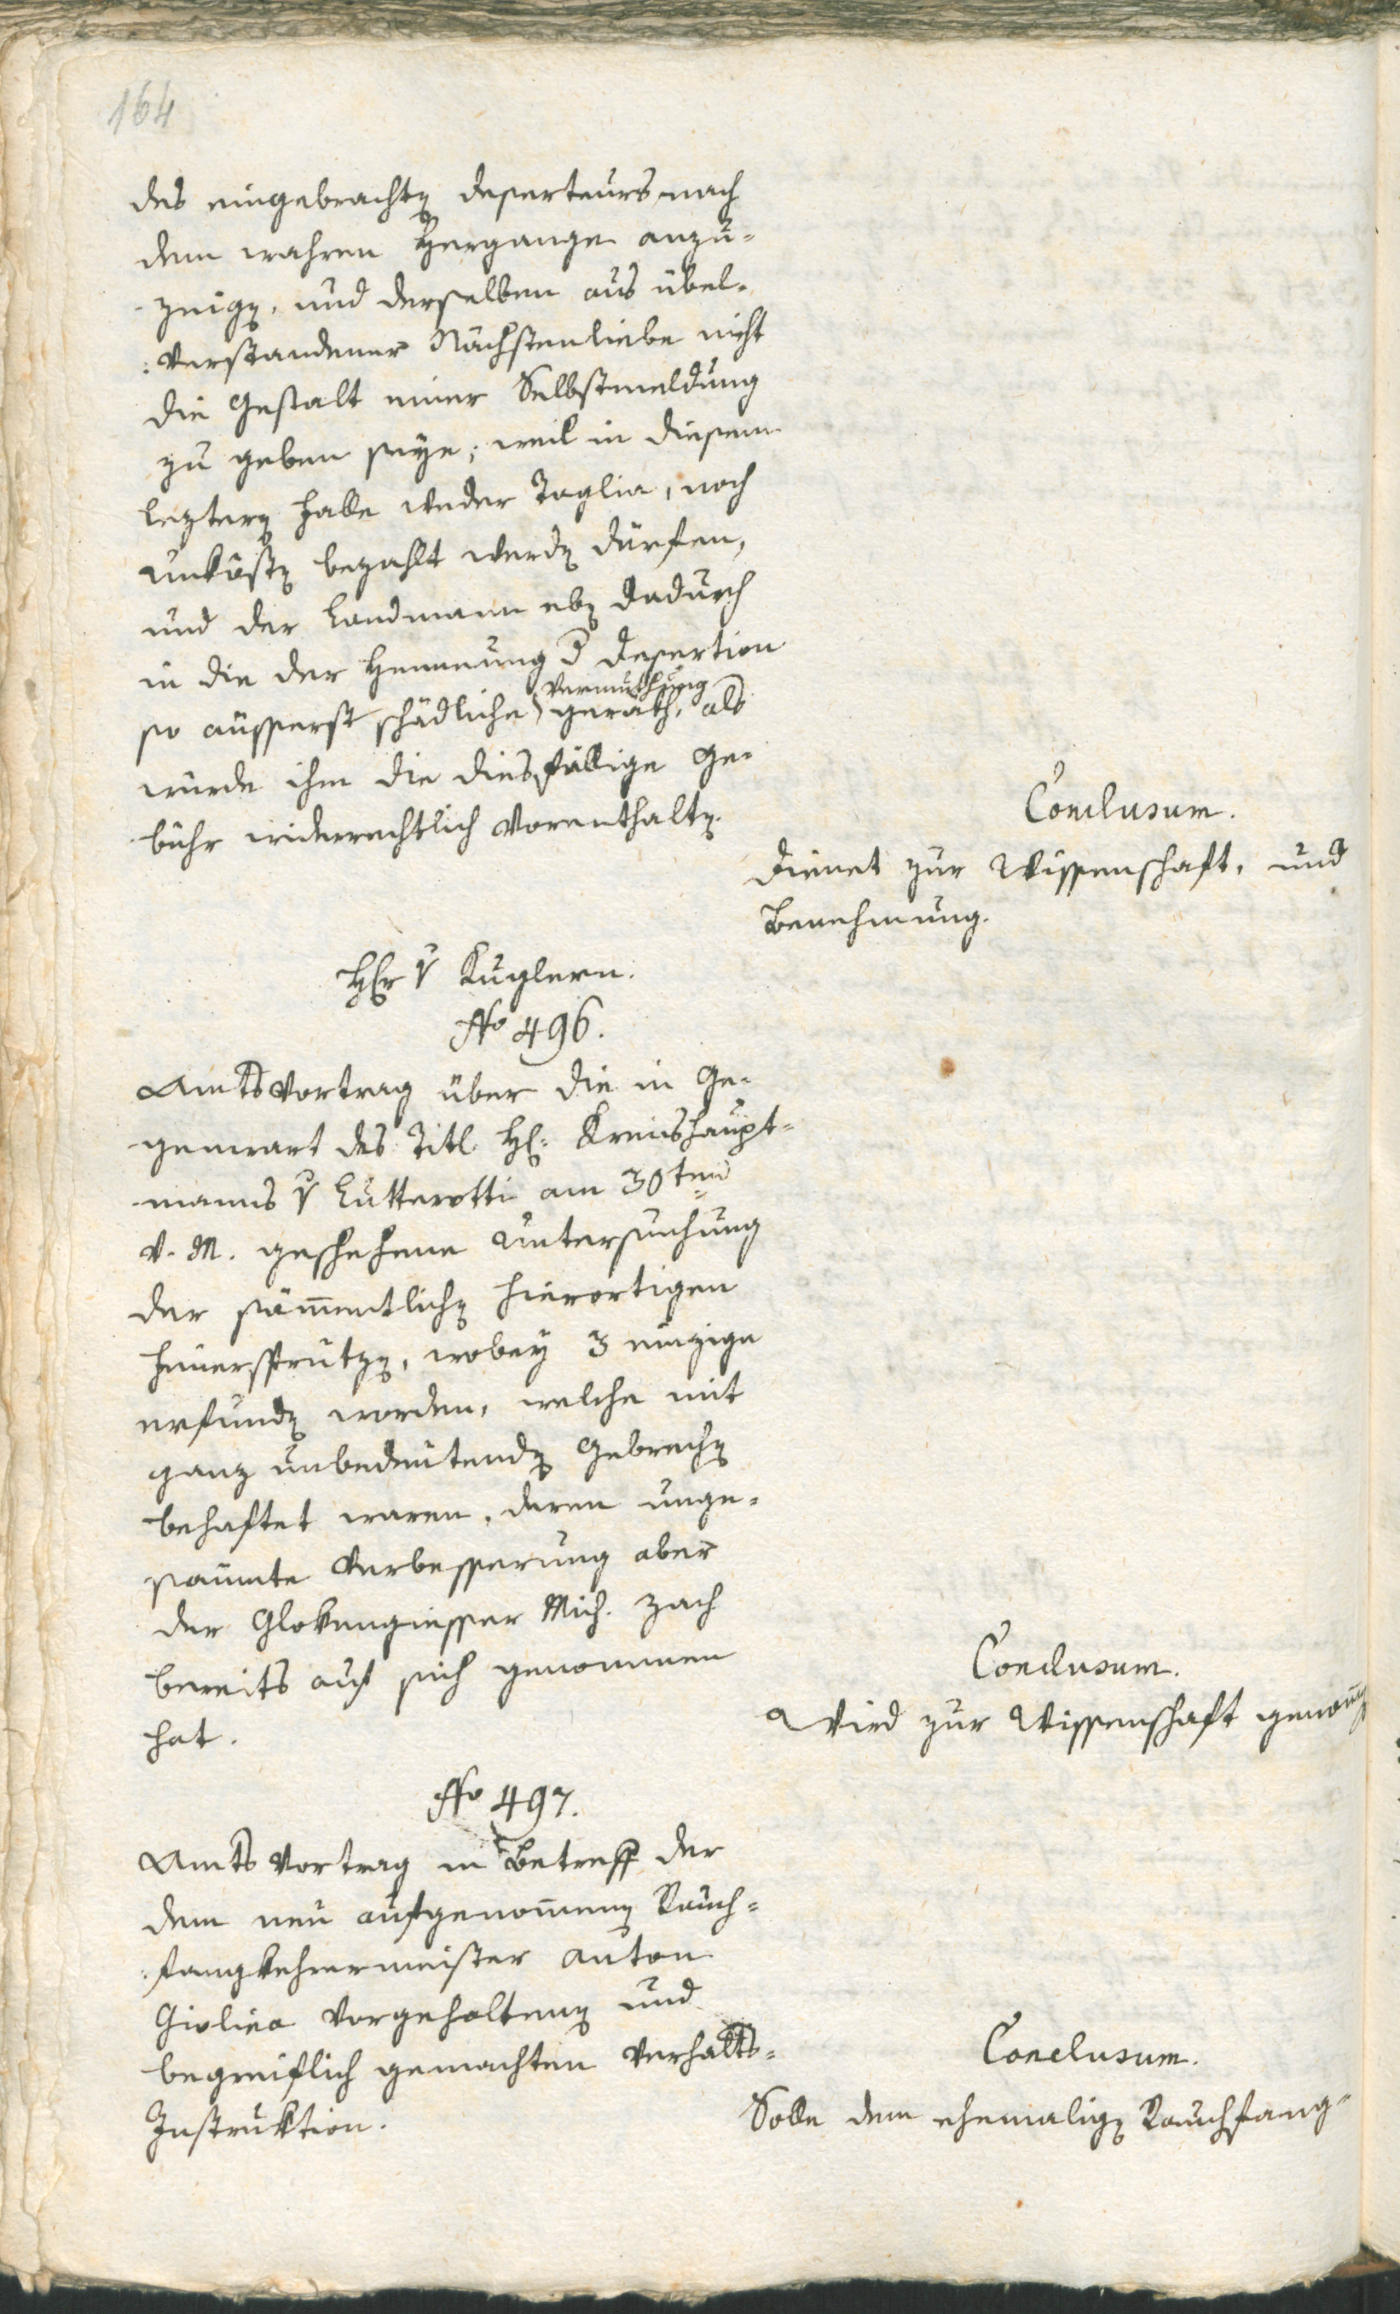 164
des eingebrachten Deserteurs nach
dem wahren Hergange anzu-
zeigen, und derselben aus übel-
verstandener Nächstenliebe nicht
die Gestalt einer Selbstmeldung
zu geben seye; weil in diesem
leztern Falle weder Taglia, noch
Unkösten bezahlt werden dürfen,
und der Landmann eben dadurch
in die der Hemmung d Desertion
Vermuthung
so äusserst schädliche geräth, als
würde ihm die diesfällige Ge-
bühr widerrechtlich vorenthalten.
Conclusum.
Dienet zur Wissenschaft, und
Benehmung.
Hr v Kuglern.
No 496.
Amts Vortrag über die in Ge-
genwart des Titl. H. Kreishaupt-
manns v Lutterotti am 30ten
v. M. geschehene Untersuchung
der sämmentlichen hierortigen
Feuersprützen, wobey 3 einzige
erfunden worden, welche mit
ganz unbedeutenden Gebrechen
behaftet waren, deren unge-
säumte Verbesserung aber
der Glokengiesser Mich. Zach
bereits auf sich genommen
hat.
Conclusum.
Wird zur Wissenschaft genomen
No 497.
Amts Vortrag in Betreff der
dem neu aufgenommenen Rauch-
fangkehrermeister Anton
vorgehaltenen und
begreiflich gemachten Verhalts-
Instruktion.
Conclusum.
Solle dem ehemaligen Rauchfang-